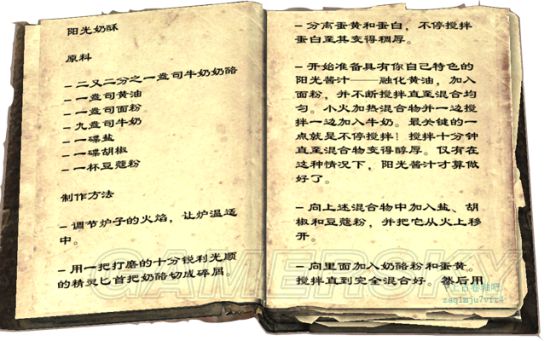 阳光奶酥
原料
- 二又二分之一盎司牛奶奶酪
- 一盎司黄油
- 一盎司面粉
- 九盎司牛奶
- 一碟盐
- 一碟胡椒
- 一杯豆蔻粉
制作方法
- 调节炉子的火焰，让炉温适
中。
- 用一把打磨的十分锐利光顺
的精灵匕首把奶酪切成碎屑。
- 分离蛋黄和蛋白，不停搅拌
蛋白至其变得稠厚。
- 开始准备具有你自己特色的
阳光酱汁——融化黄油，加入
面粉，并不断搅拌直至混合均
匀。小火加热混合物并一边搅
拌一边加入牛奶。最关键的一
点就是不停搅拌！搅拌十分钟
直至混合物变得醇厚。仅有在
这种情况下，阳光酱汁才算做
好了。
- 向上述混合物中加入盐、胡
椒和豆蔻粉，并把它从火上移
开。
- 向里面加入奶酪粉和蛋黄。
搅拌直到完全混合好。然后用
GAMERSKY